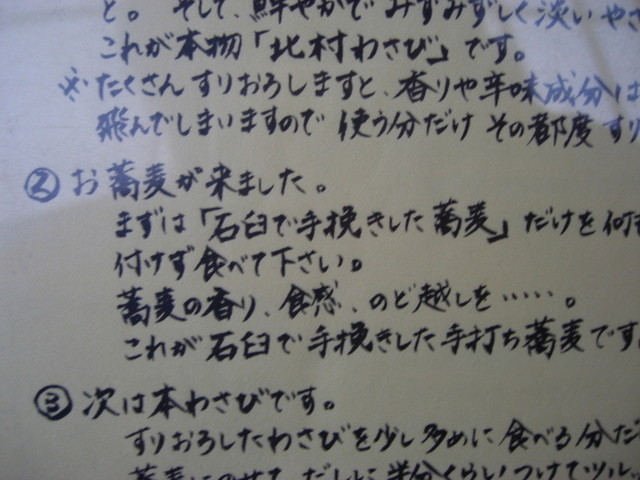 と。そして、鮮やかでみずみずしく淡いやさ
これが本物「北村わさび」です。
※たくさんすりおろしますと、香りや辛味成分は
飛んでしまいますので使う分だけその都度すり
②お蕎麦が来ました。
まずは「石臼で手挽きした蕎麦」だけを何も
付けず食べて下さい。
蕎麦の香り、食感、のど越しを……。
これが石臼で手挽きした手打ち蕎麦です。
③次は本わさびです。
すりおろしたわさびを少し多めに食べる分だ
蕎麦にのせて、だしに半分くらいつけてツルッ